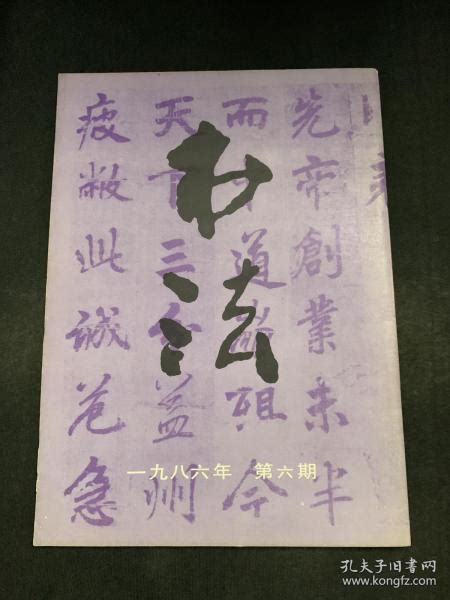 书法
先帝創業未半
而中道崩殂今
天下三分益州
疲敝此誠危急
一九八六年 第六期
孔夫子旧书网
www.kongfz.com